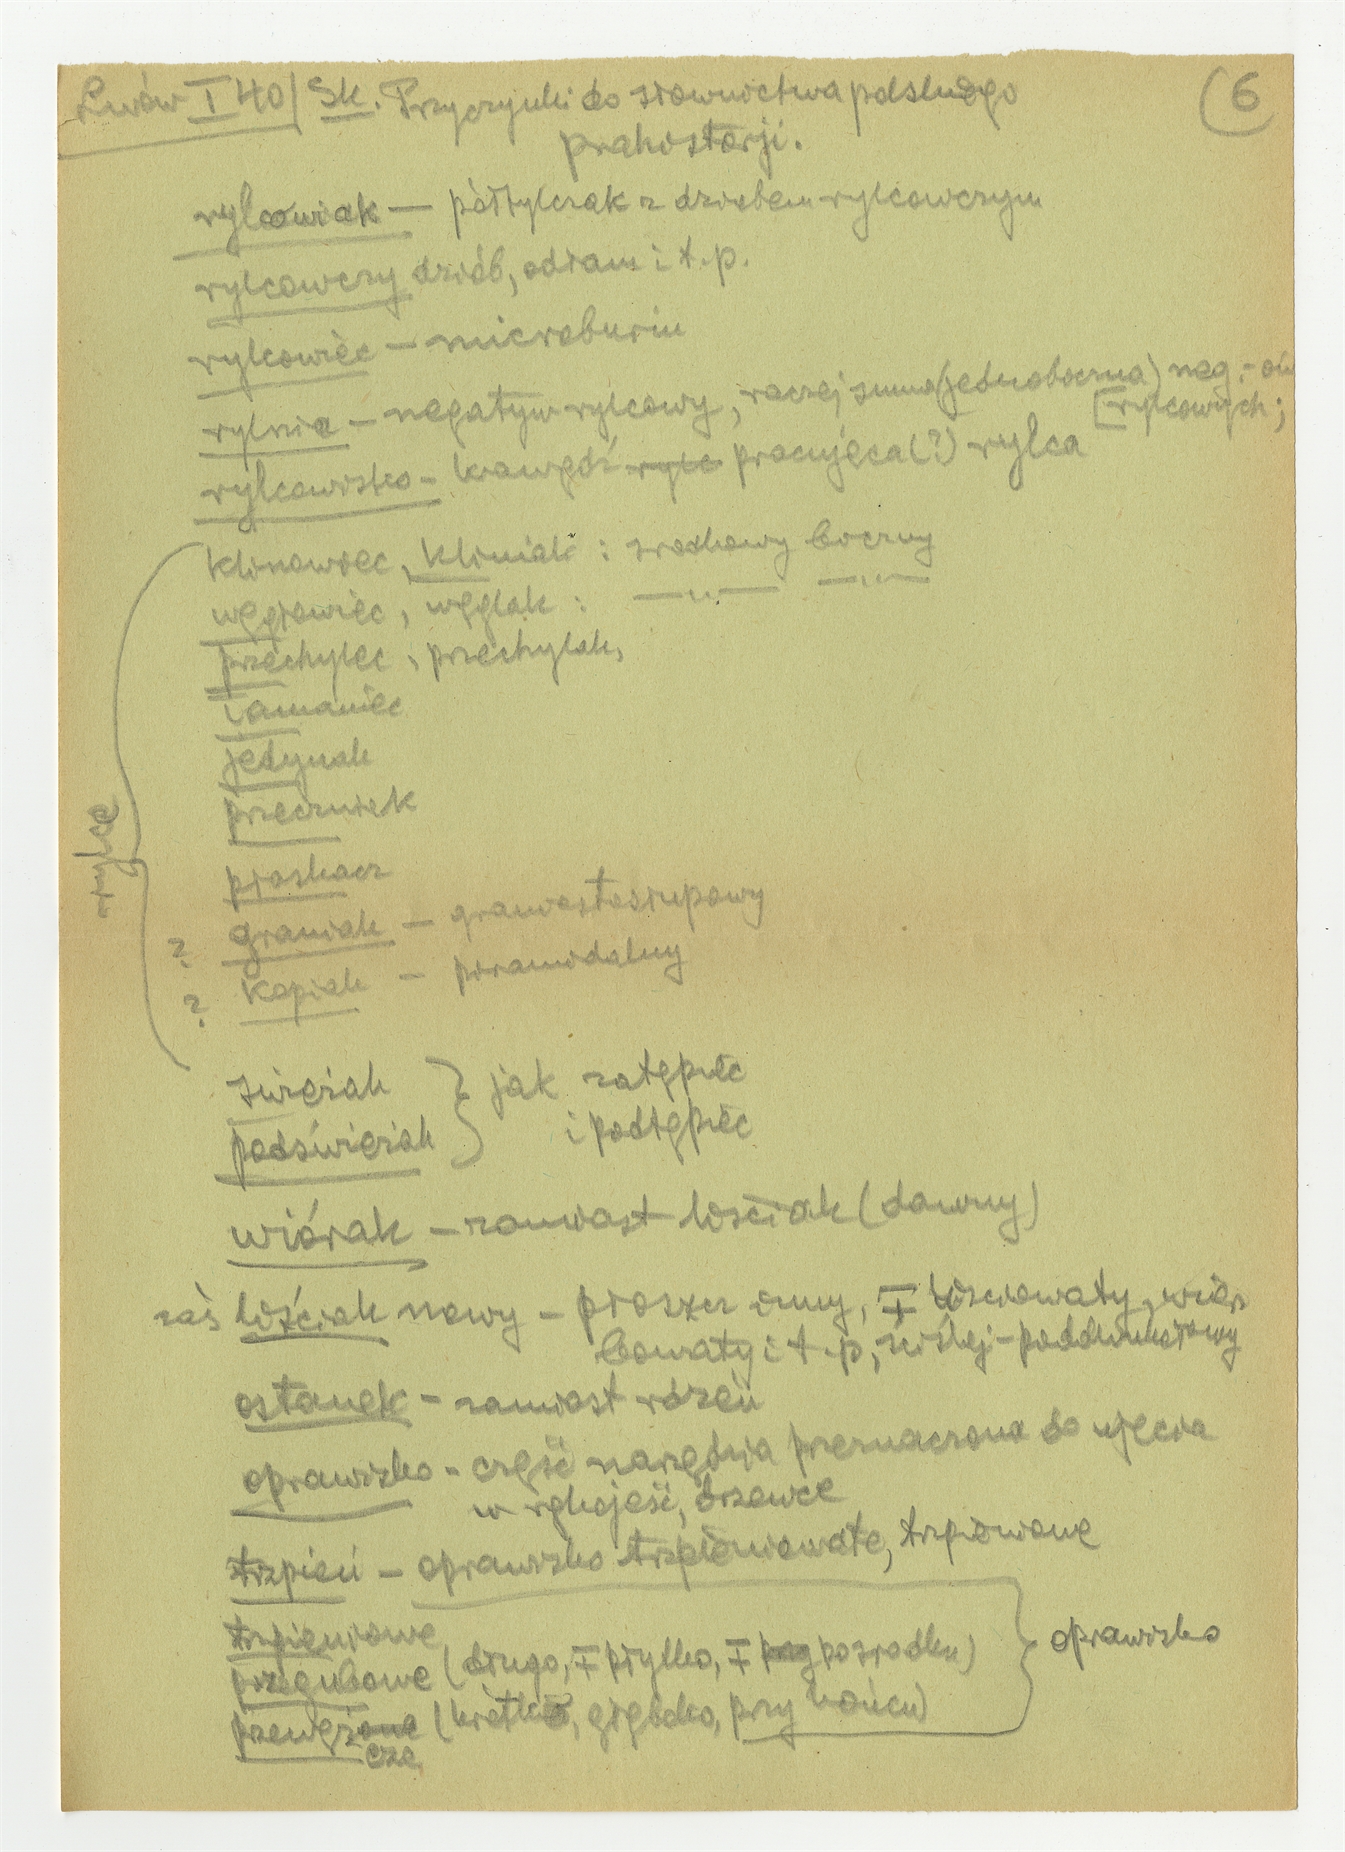 Lwów I 40/ Sk. Przyczynki do słownictwa polskiego (6
prahistorji.
rylcowiak — półtylczak z dziobem rylcowczym
rylcowczy dziób, odłam i t.p.
rylcowiec — microburin
rylnia — negatyw rylcowy, raczej suma (jednoboczna) neg.-ów
[rylcowych;
rylcowisko - krawędź rylc pracująca (?) rylca
klinowiec, kliniak : środkowy boczny
węgłowiec, węglak : —„— —„—
przechylec, przechylak,
łamaniec
jedynak
przeczniek
płaskacz
? graniak — graniastosłupowy
? kopiak — piramidalny
rylce
świeciak } jak zatępiec
podświeciak i podtępiec
wiórak — zamiast łuściak (dawny)
zaś łuściak nowy — płoszcz inny, ∓ łuscowaty, wiór
bowaty i t.p., ściślej - poddłuketowy
ostanek - zamiast rdzeń
oprawisko - część narzędzia przeznaczona do ujęcia
w rękojeść, drzewce
trzpień — oprawisko trzpieniowate, trzpieniowe
trzpieniowe
przegubowe (długo, ∓ płytko, ∓ pośrodku) } oprawisko
przewężone (krótko, głęboko, przy końcu)
cze